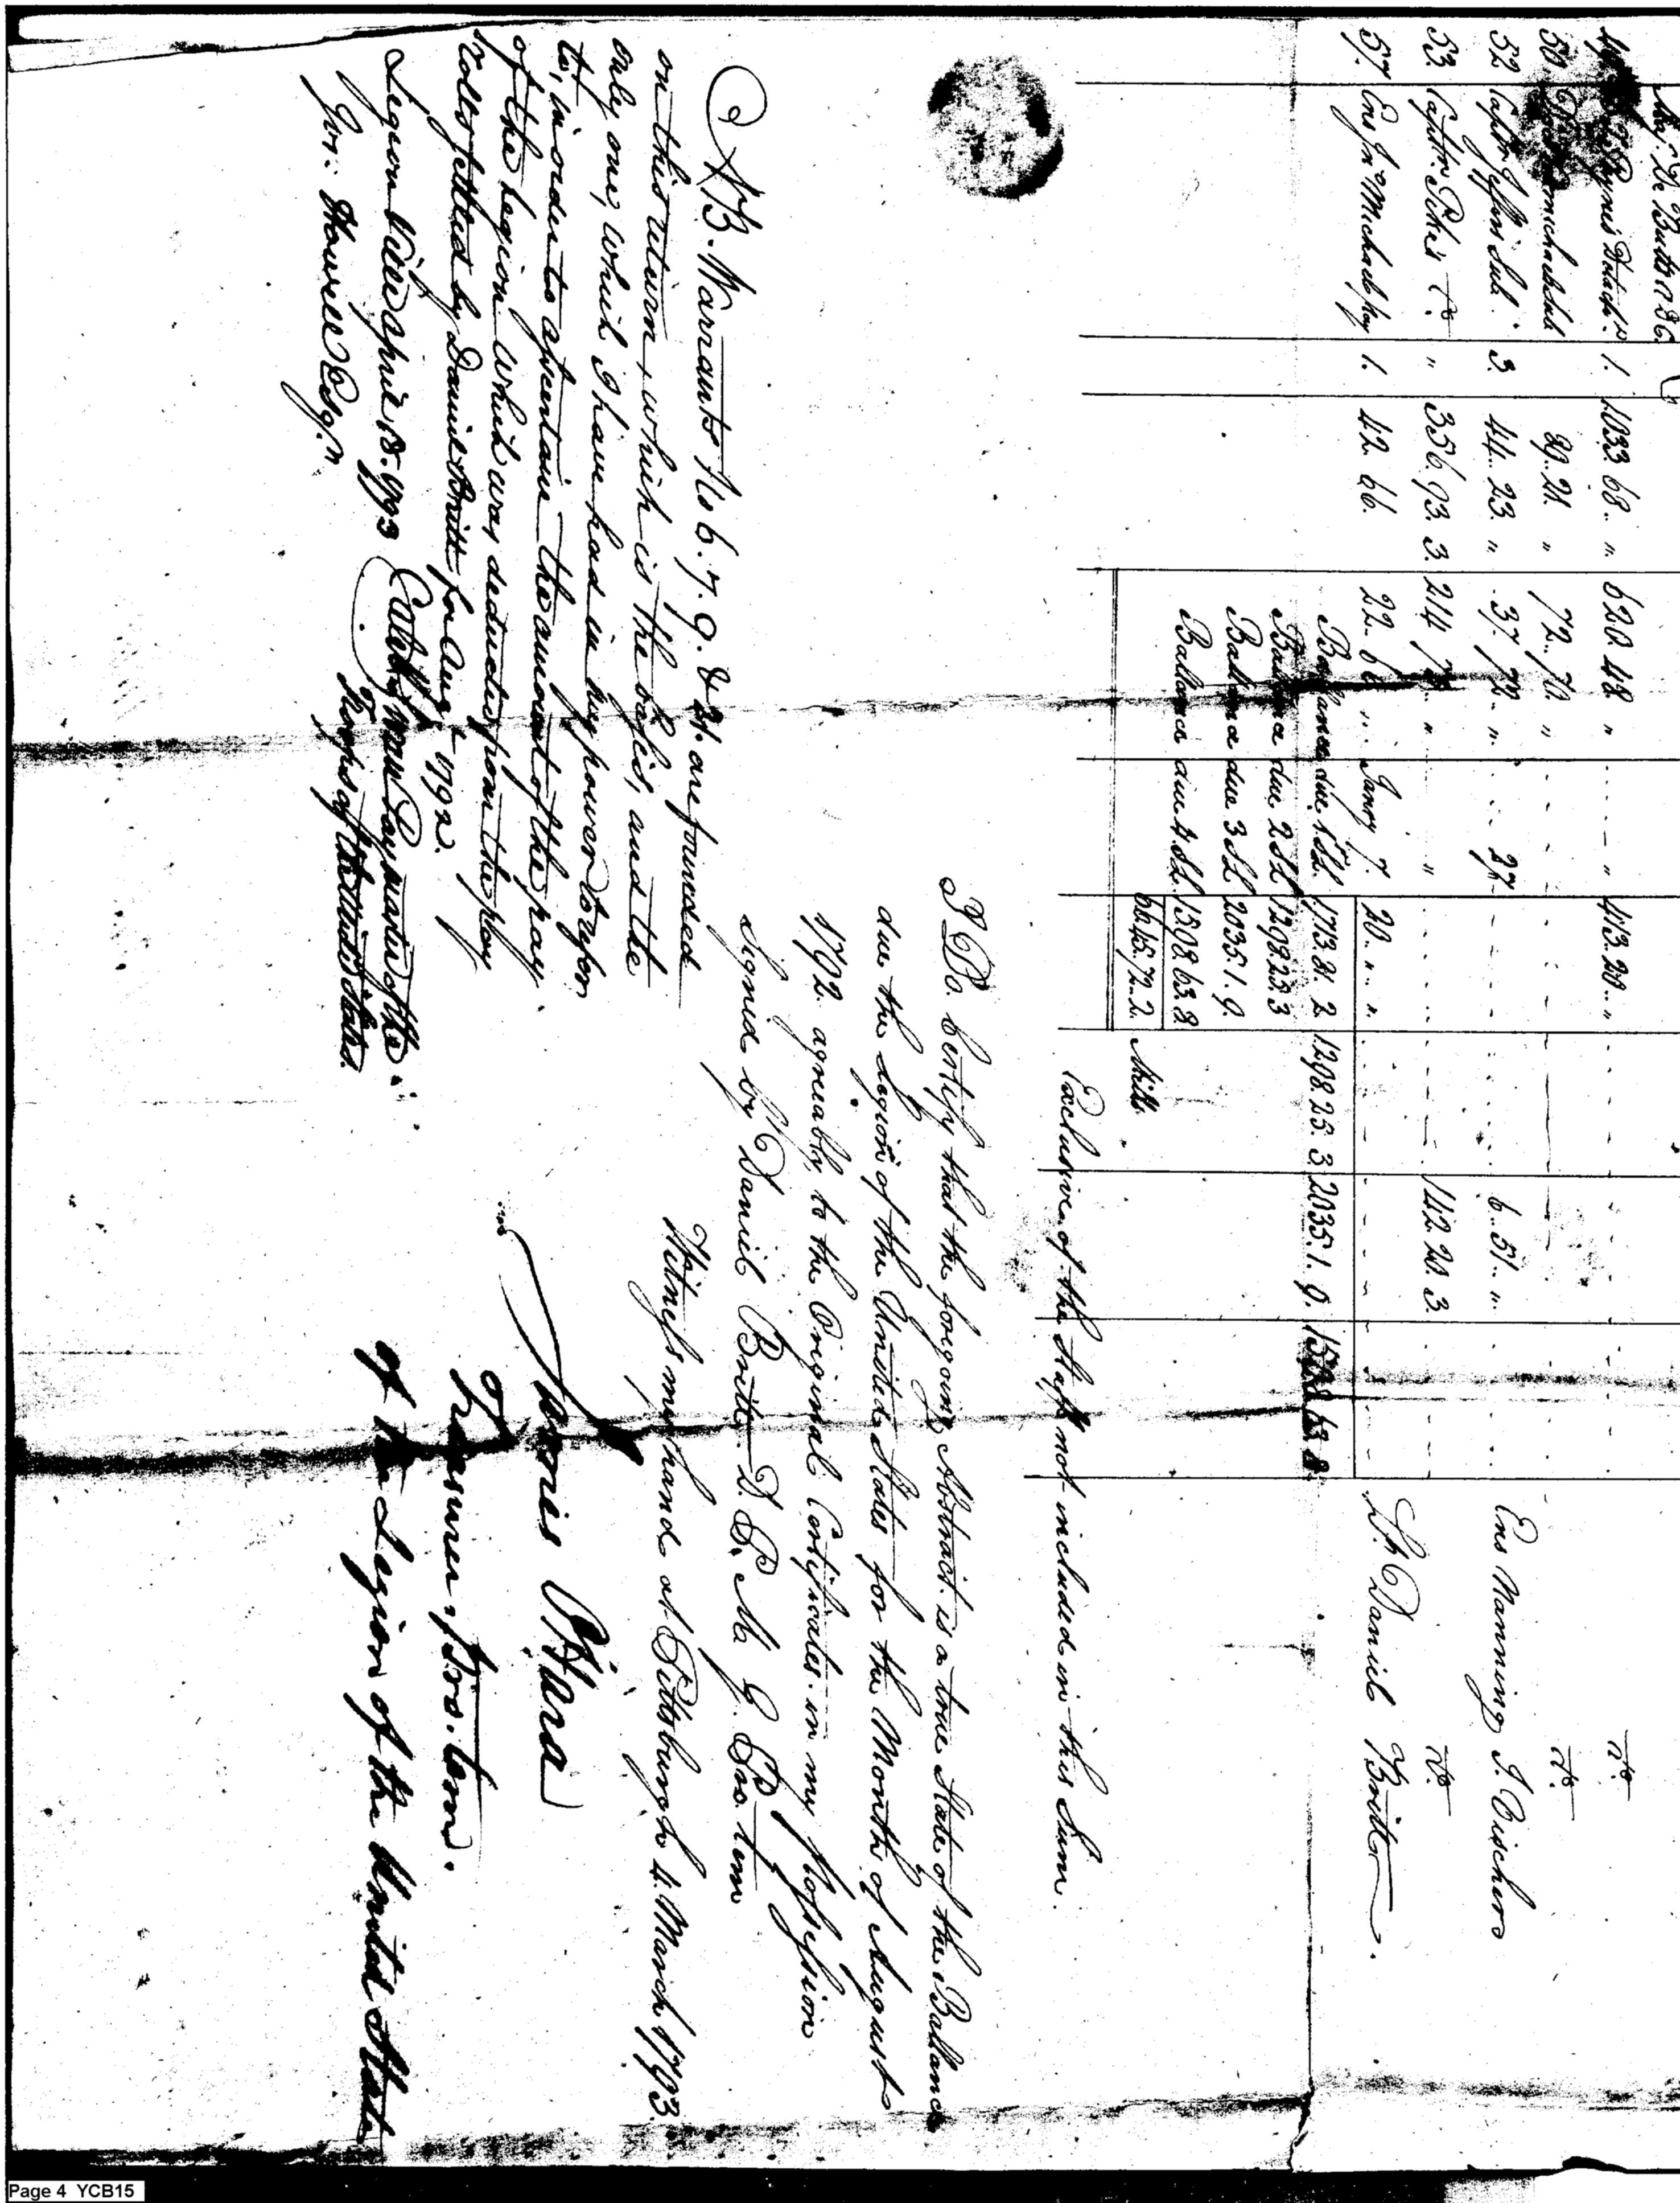 Maj. De Butts
1. 1033 68 .. " 620. 48 " " 413. 20 .. " do
50. michael Sub 89.. 21. " 72.. 70. " do
52 Capt. Jeffers Sub. 3. 44.. 23. " 37. 72 .. " 27 6.. 51.. " Ens Manning J. Bischero
53. Capt. Pike's do. " 356. 93. 3. 214 " " 142. 20. 3. do
57. Ens Jn. Michael pay 1. 42. 66. 22. 6 Janry 7. 20. " " Lt. Daniel Britt
Ballance due 1. SL. 1713. 81. 2 1298. 25. 3 2035. 1. 9. 1598 63. 8.
Ballance due 2 SL 1298. 25. 3
Ballance due 3 SL. 2035. 1. 9.
Ballance due 4. SL. 1598. 63. 8
6645.. 72.. 2. Mills.
Exclusive of the Staff not included in this Sum.
I Do. Certify that the foregoing Abstract. is a true State of the Ballance
due the Legion of the United States for the Month of August
1792. agreeably to the Original Certificates. in my possession
Signed by Daniel Britt. D. P. M. G. Pro. tem
Witness my hand at Pittsburgh 4. March 1793.
James O'Hara
Treasurer, pro. tem.
of the Legion of the United States
NB. Warrants No 6. 7. 9. & 21. are founded
on this return, which is the basis, and the
only one, which I have had in my power to refer
to, in order to ascertain the amount of the pay
of the Legion which was deducted from the pay
rolls settled by Daniel Britt for Augt. 1792.
Legion Ville April 18. 1793 Caleb Swan Paymaster of the
Troops of the United States.
Jos: Howell Esqr.
Page 4 YCB15